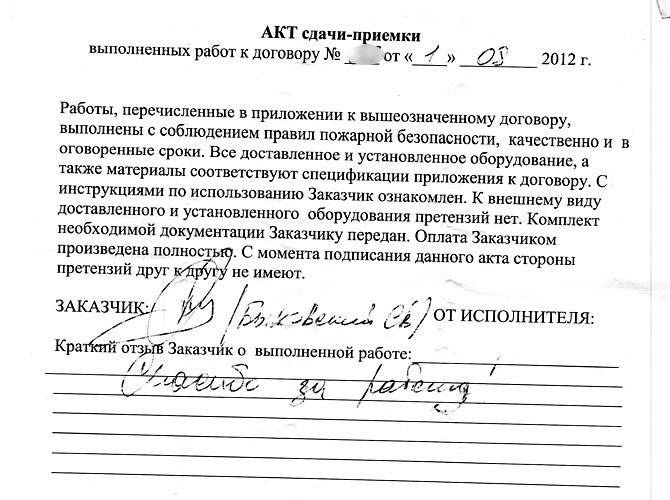 АКТ сдачи-приемки
выполненных работ к договору № от «1» 08 2012 г.
Работы, перечисленные в приложении к вышеозначенному договору,
выполнены с соблюдением правил пожарной безопасности, качественно и в
оговоренные сроки. Все доставленное и установленное оборудование, а
также материалы соответствуют спецификации приложения к договору. С
инструкциями по использованию Заказчик ознакомлен. К внешнему виду
доставленного и установленного оборудования претензий нет. Комплект
необходимой документации Заказчику передан. Оплата Заказчиком
произведена полностью. С момента подписания данного акта стороны
претензий друг к другу не имеют.
ЗАКАЗЧИК: (Быховский ОТ ИСПОЛНИТЕЛЯ:
Краткий отзыв Заказчик о выполненной работе:
Спасибо за работу!